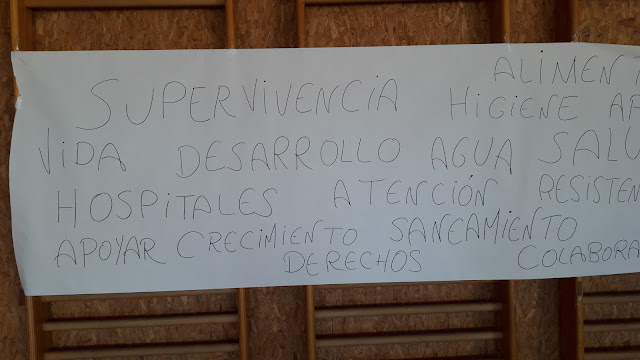 ALIMEN
SUPERVIVENCIA HIGIENE
VIDA DESARROLLO AGUA SALU
HOSPITALES ATENCIÓN RESISTEN
APOYAR CRECIMIENTO SANEAMIENTO
DERECHOS COLABORA